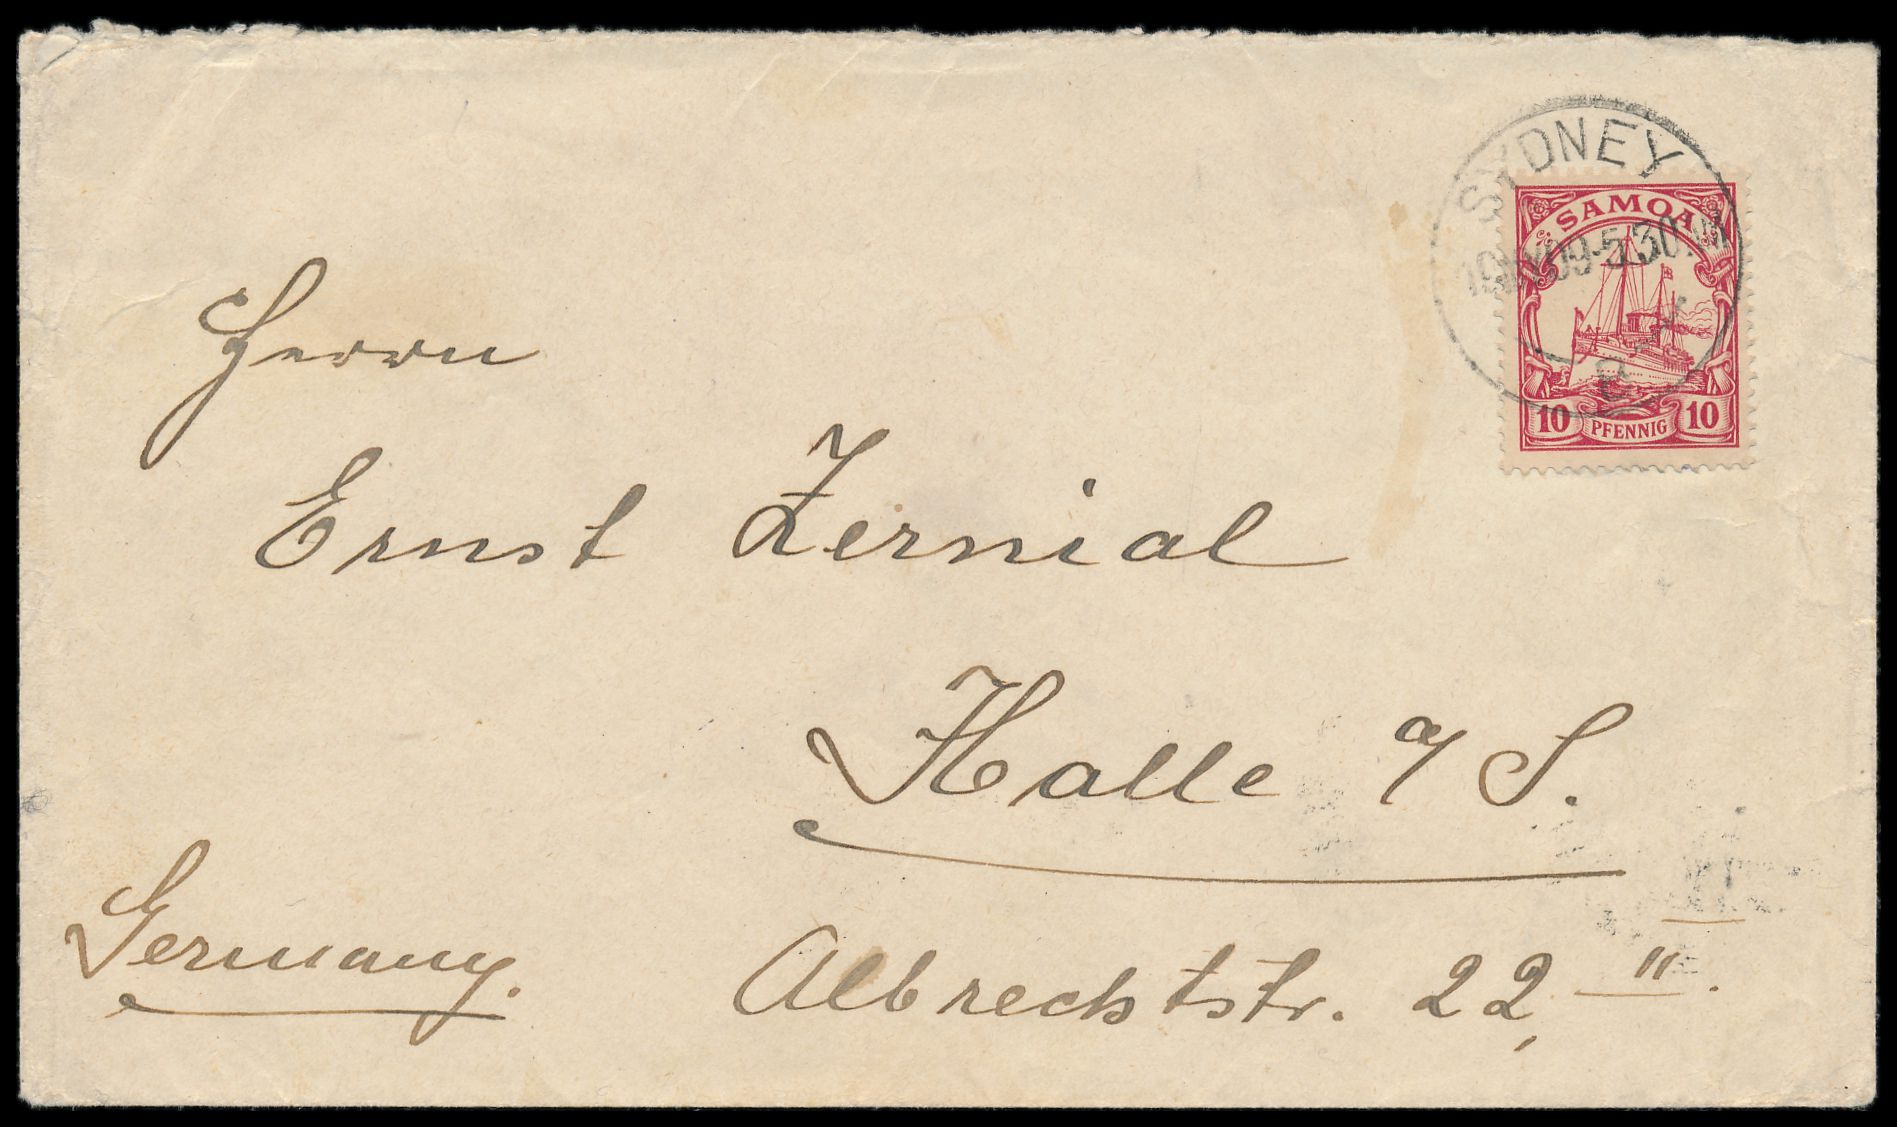 SYDNEY
SAMOA
10 PFENNIG 10
Herrn
Ernst Zernial
Halle a/S.
Germany.
Albrechtstr. 22, II.